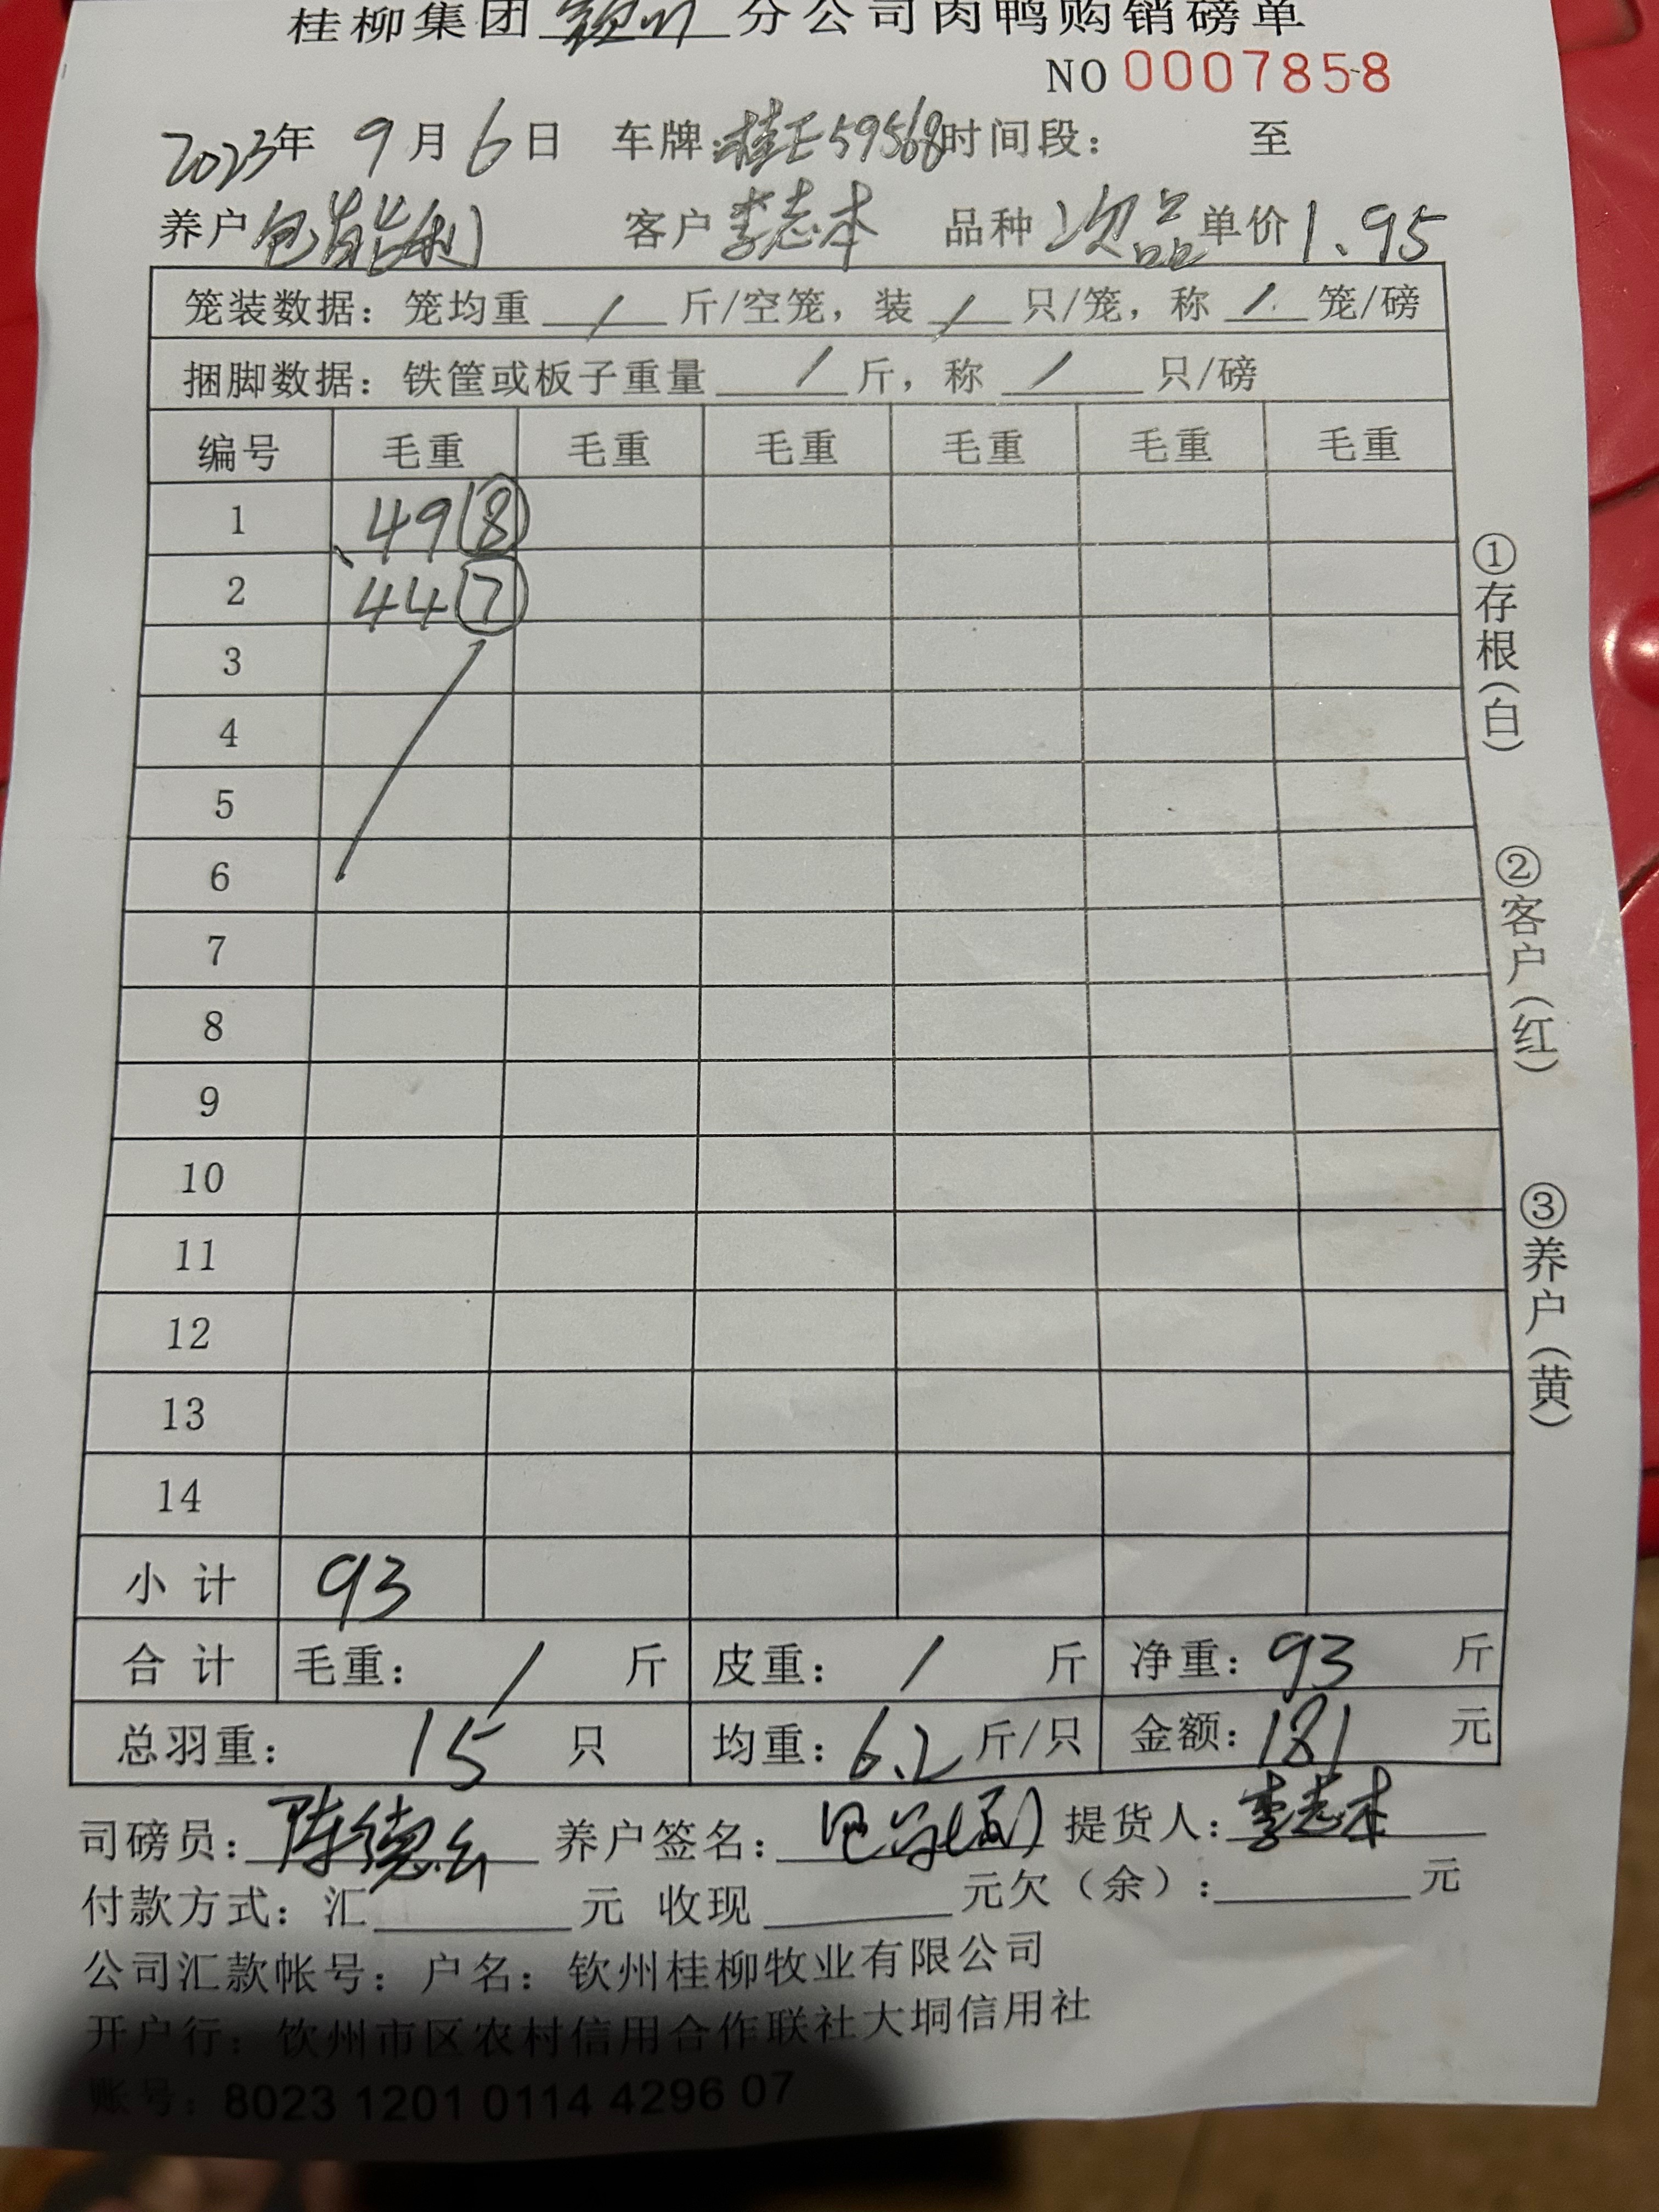 桂柳集团 钦州 分公司肉鸭购销磅单
NO 0007858
2023年 9月6日 车牌:桂E59568时间段: 至
养户 包能利 客户 李志本 品种 次品 单价 1.95
笼装数据:笼均重 / 斤/空笼,装 / 只/笼,称 / 笼/磅
捆脚数据:铁筐或板子重量 / 斤,称 / 只/磅
编号 毛重 毛重 毛重 毛重 毛重 毛重
1 49 8
2 44 7
3
4
5
6
7
8
9
10
11
12
13
14
小计 93
合计 毛重: / 斤 皮重: / 斤 净重:93 斤
总羽重: 15 只 均重:6.2 斤/只 金额:181 元
司磅员: 养户签名: 提货人:李志本
付款方式:汇 元 收现 元欠(余): 元
公司汇款帐号:户名:钦州桂柳牧业有限公司
开户行:钦州市区农村信用合作联社大垌信用社
账号:8023 1201 0114 4296 07
①存根(白)
②客户(红)
③养户(黄)